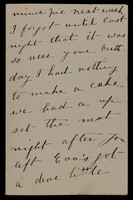 mince pie next week
I forgot until last
night that it was
so near your birth
day I had nothing
to make a cake
we had a up
set the next
night after you
left Eva's got
a dear little